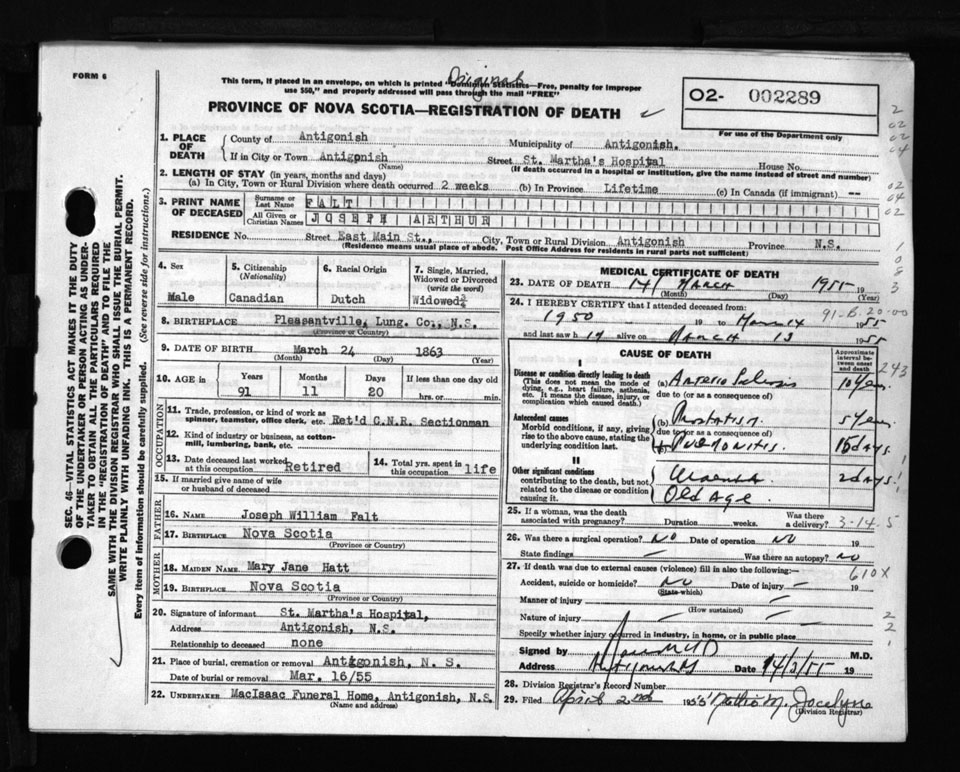 FORM 6
Original
This form, if placed in an envelope, on which is printed "Dominion Statistics—Free, penalty for improper
use $50," and properly addressed will pass through the mail "FREE"
PROVINCE OF NOVA SCOTIA—REGISTRATION OF DEATH
O2- 002289
For use of the Department only
1. PLACE OF DEATH
County of Antigonish Municipality of Antigonish.
If in City or Town Antigonish Street St. Martha's Hospital House No.
(Name) (If death occurred in a hospital or institution, give the name instead of street and number)
2. LENGTH OF STAY (in years, months and days)
(a) In City, Town or Rural Division where death occurred 2 weeks (b) In Province Lifetime (c) In Canada (if immigrant) --
3. PRINT NAME OF DECEASED
Surname or Last Name FALT
All Given or Christian Names JOSEPH ARTHUR
RESIDENCE No. Street East Main St., City, Town or Rural Division Antigonish Province N.S.
(Residence means usual place of abode. Post Office Address for residents in rural parts not sufficient)
4. Sex
Male
5. Citizenship (Nationality)
Canadian
6. Racial Origin
Dutch
7. Single, Married, Widowed or Divorced (write the word)
Widowed
8. BIRTHPLACE Pleasantville, Lung. Co., N.S.
(Province or Country)
9. DATE OF BIRTH March 24 1863
(Month) (Day) (Year)
10. AGE in Years Months Days If less than one day old
91 11 20 hrs. or min.
OCCUPATION
11. Trade, profession, or kind of work as spinner, teamster, office clerk, etc. Ret'd C.N.R. Sectionman
12. Kind of industry or business, as cotton-mill, lumbering, bank, etc.
13. Date deceased last worked at this occupation Retired
14. Total yrs. spent in this occupation life
15. If married give name of wife or husband of deceased
FATHER
16. NAME Joseph William Falt
17. BIRTHPLACE Nova Scotia
(Province or Country)
MOTHER
18. MAIDEN NAME Mary Jane Hatt
19. BIRTHPLACE Nova Scotia
(Province or Country)
20. Signature of informant St. Martha's Hospital,
Address Antigonish, N.S.
Relationship to deceased none
21. Place of burial, cremation or removal Antigonish, N. S.
Date of burial or removal Mar. 16/55
22. UNDERTAKER MacIsaac Funeral Home, Antigonish, N.S.
(Name and address)
MEDICAL CERTIFICATE OF DEATH
23. DATE OF DEATH 14 March 1955 19
(Month) (Day) (Year)
24. I HEREBY CERTIFY that I attended deceased from:
1950 19 to March 14 1955
91-B.20.00
and last saw h alive on March 13 1955
CAUSE OF DEATH
Approximate interval between onset and death
243
I
Disease or condition directly leading to death
(This does not mean the mode of dying, e.g., heart failure, asthenia, etc. It means the disease, injury, or complication which caused death.)
(a) Arterio Sclerosis 10 years
due to (or as a consequence of)
Antecedent causes
Morbid conditions, if any, giving rise to the above cause, stating the underlying condition last.
(b) Prostatism 5 years
due to (or as a consequence of)
Pneumonitis. 15 days.
II
Other significant conditions
contributing to the death, but not related to the disease or condition causing it.
Uraemia 2 days
Old Age
25. If a woman, was the death associated with pregnancy? Duration weeks. Was there a delivery? 3-14.5
26. Was there a surgical operation? No Date of operation No 19
State findings Was there an autopsy? No
27. If death was due to external causes (violence) fill in also the following:—
610X
Accident, suicide or homicide? No Date of injury — 19
(State which)
Manner of injury
(How sustained)
Nature of injury
Specify whether injury occurred in industry, in home, or in public place
Signed by M.D.
Address Antigonish Date 14/3/55 19
28. Division Registrar's Record Number
29. Filed April 2nd 1955 M. Jocelyn
(Division Registrar)
SEC. 46—VITAL STATISTICS ACT MAKES IT THE DUTY
OF THE UNDERTAKER OR PERSON ACTING AS UNDER-
TAKER TO OBTAIN ALL THE PARTICULARS REQUIRED
IN THE "REGISTRATION OF DEATH" AND TO FILE THE
SAME WITH THE DIVISION REGISTRAR WHO SHALL ISSUE THE BURIAL PERMIT.
WRITE PLAINLY WITH UNFADING INK. THIS IS A PERMANENT RECORD.
Every item of information should be carefully supplied. (See reverse side for instructions.)